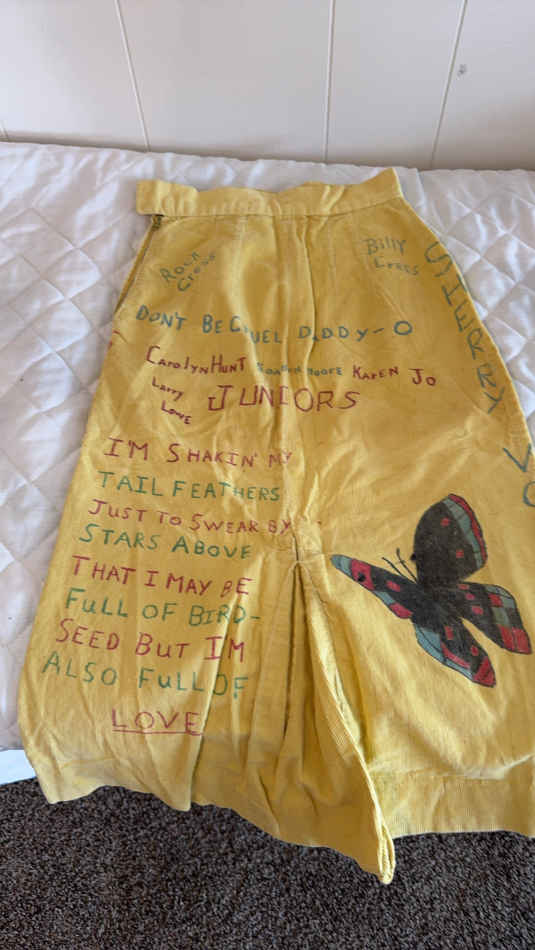 Rock
Cross
Billy
Lress
DON'T BE CRUEL DADDY-O
Carolyn Hunt Moore Karen Jo
Larry
Lowe
JUNIORS
I'M SHAKIN' MY
TAIL FEATHERS
JUST TO SWEAR BY
STARS ABOVE
THAT I MAY BE
FULL OF BIRD-
SEED BUT I'M
ALSO FULL OF
LOVE